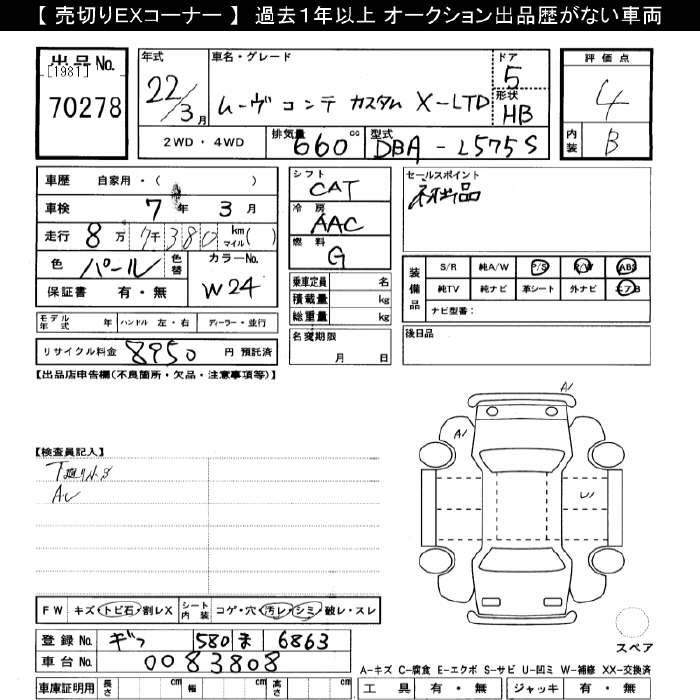 【 売切りEXコーナー 】 過去１年以上 オークション出品歴がない車両
出品 No.
[1981]
70278
年式
22/3月
車名・グレード
ムーヴ コンテ カスタム X-LTD
ドア
5
形状
HB
2WD・4WD
排気量
660 cc
型式
DBA-L575S
評価点
4
内装
B
車歴 自家用・( )
車検 7年 3月
走行 8万 7千 380 km マイル( )
色 パール 色替
カラーNo.
W24
保証書 有・無
シフト
CAT
冷房
AAC
燃料
G
セールスポイント
乗車定員 名
積載量 kg
総重量 kg
装備品
S/R 純A/W P/S P/W ABS
純TV 純ナビ 革シート 外ナビ エアB
ナビ型番：
モデル年式 年 ハンドル 左・右 ディーラー・並行
名変期限
月 日
後日品
リサイクル料金 8950 円 預託済
【出品店申告欄(不良箇所・欠品・注意事項等)】
【検査員記入】
A1
A1
FW キズ・トビ石・割レX
シート内装 コゲ・穴・汚レ・シミ・破レ・スレ
登録 No. ギフ 580 ま 6863
車台 No. 0083808
スペア
A-キズ C-腐食 E-エクボ S-サビ U-凹ミ W-補修 XX-交換済
車庫証明用 長さ cm 幅 cm 高さ cm
工具 有・無 ジャッキ 有・無